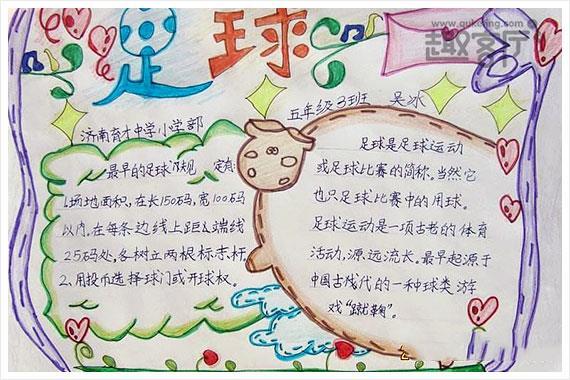 www.quketing.com
趣客厅
足球
济南育才中学小学部
五年级3班 吴冰
最早的足球规定有:
1.场地面积,在长150码,宽100码
以内,在每条边线上距端线
25码处,各树立两根标志杆
2.用投币选择球门或开球权。
足球是足球运动
或足球比赛的简称。当然它
也只足球比赛中的用球。
足球运动是一项古老的体育
活动,源远流长。最早起源于
中国古代的一种球类游
戏“蹴鞠”。